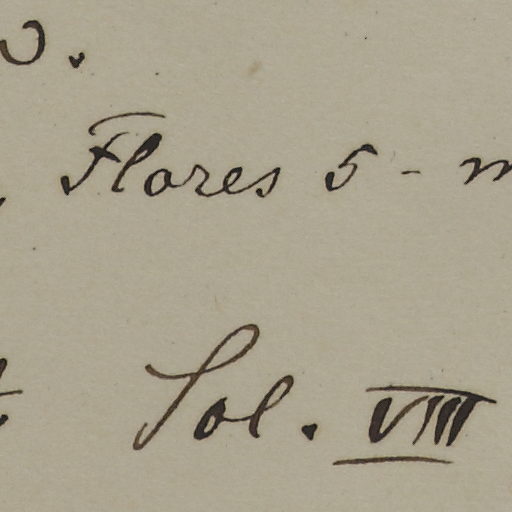 Flores 5 - m
Sol. VIII